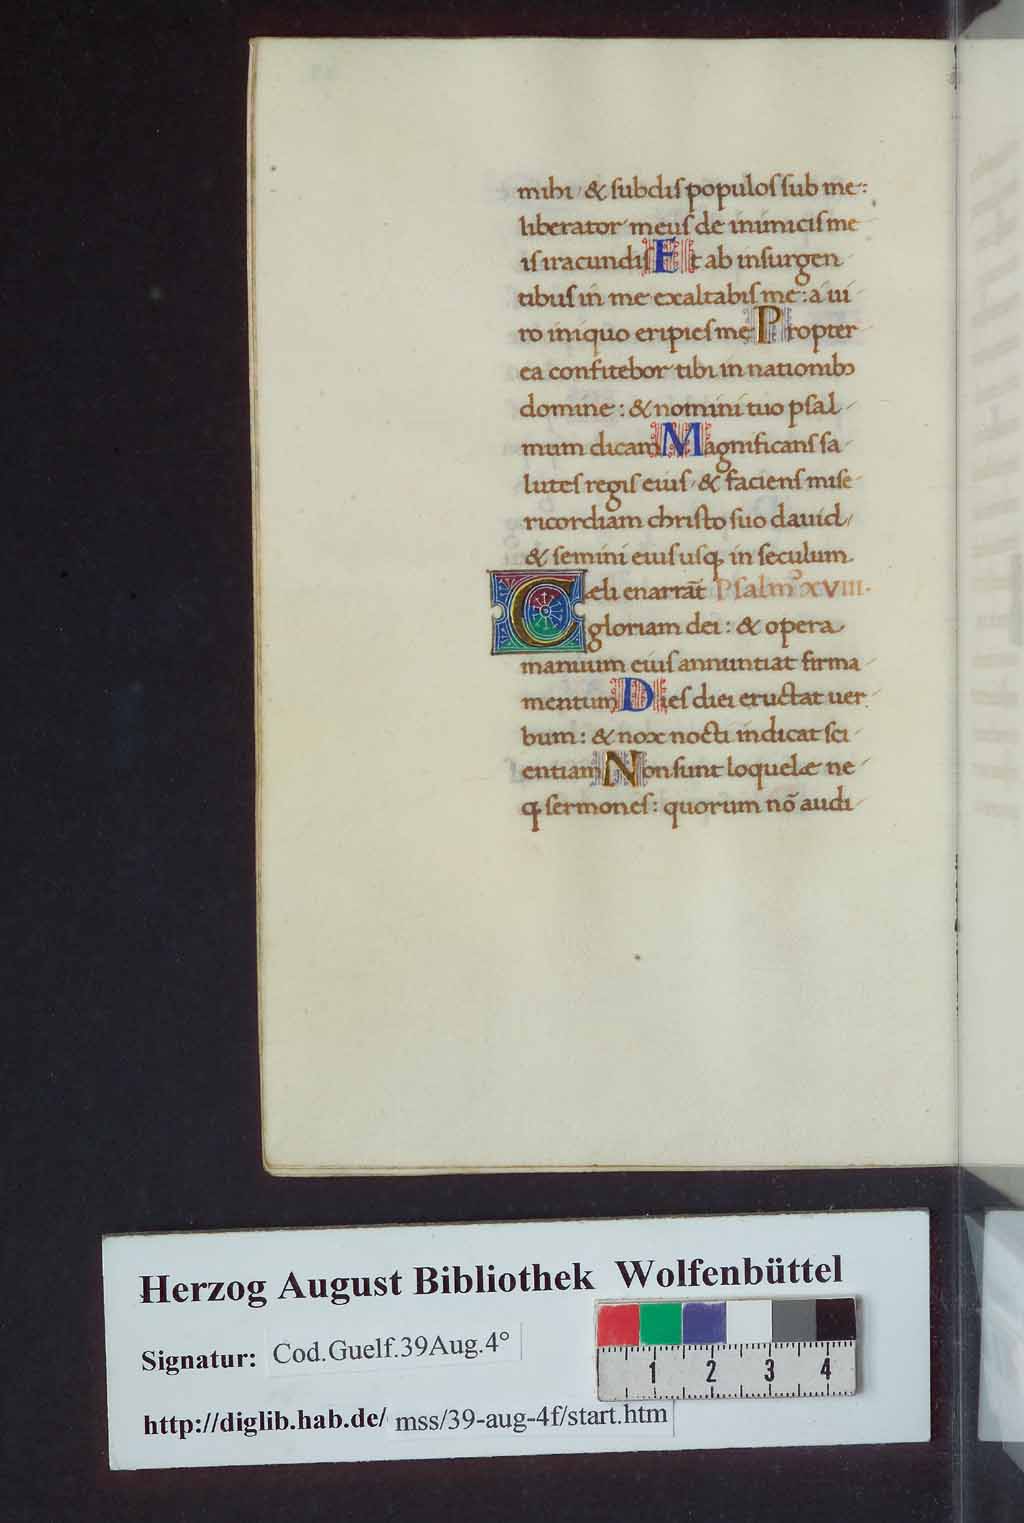 mihi / & ſubdiſ populoſ ſub me:
liberator meuſ de inimiciſ me
iſ iracundiſ Et ab inſurgen
tibuſ in me exaltabiſ me: a ui
ro iniquo eripieſ me Propter
ea confitebor tibi in nationibꝫ
domine: & nomini tuo pſal
mum dicam Magnificanſ ſa
luteſ regiſ eiuſ / & facienſ miſe
ricordiam chriſto ſuo dauid /
& ſemini eiuſ uſqꝫ in ſeculum
Cæli enarrāt Pſalmᵒ XVIII.
gloriam dei: & opera
manuum eiuſ annuntiat firma
mentum Dieſ diei eructat uer
bum: & nox nocti indicat ſci
entiam Non ſunt loquelæ ne
qꝫ ſermoneſ: quorum nō audi
Herzog August Bibliothek Wolfenbüttel
Signatur: Cod.Guelf.39Aug.4°
1 2 3 4
http://diglib.hab.de/ mss/39-aug-4f/start.htm